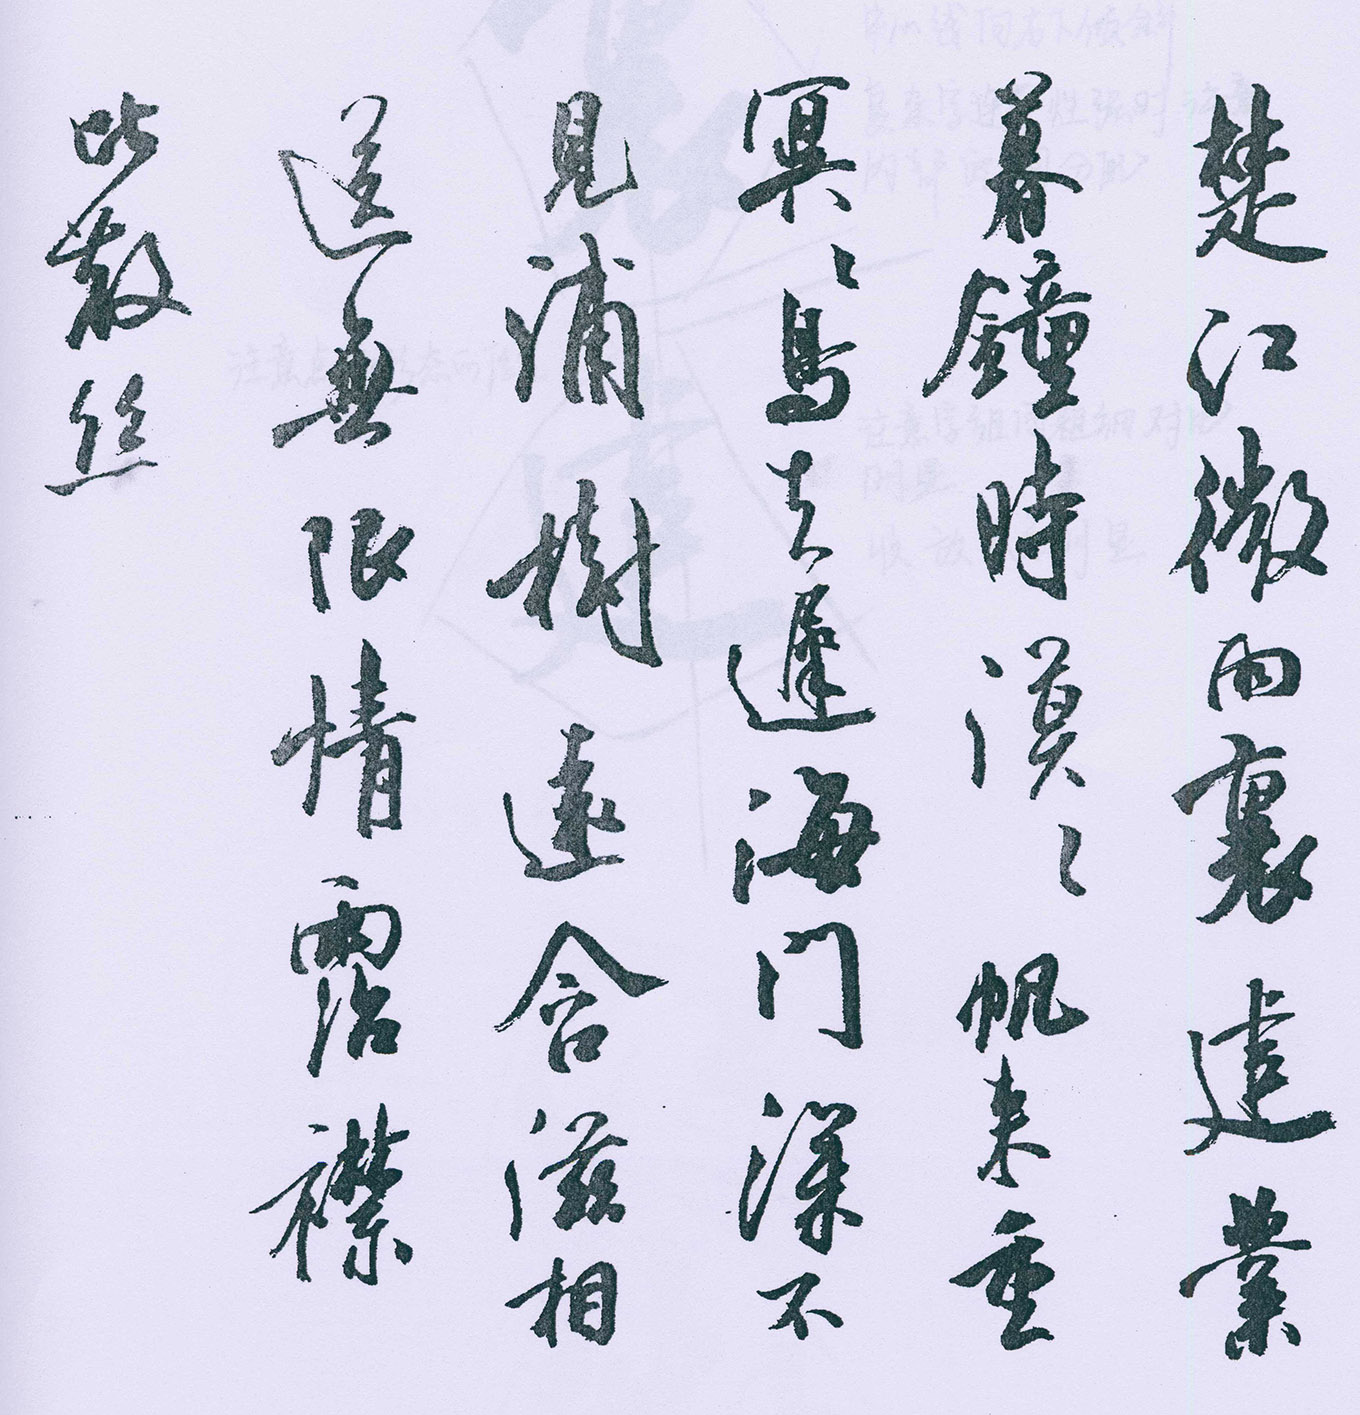 楚江微雨裏建業
暮鐘時漠〻帆来重
冥〻鳥去遲海门深不
見浦樹遠含滋相
送無限情霑襟
比散絲